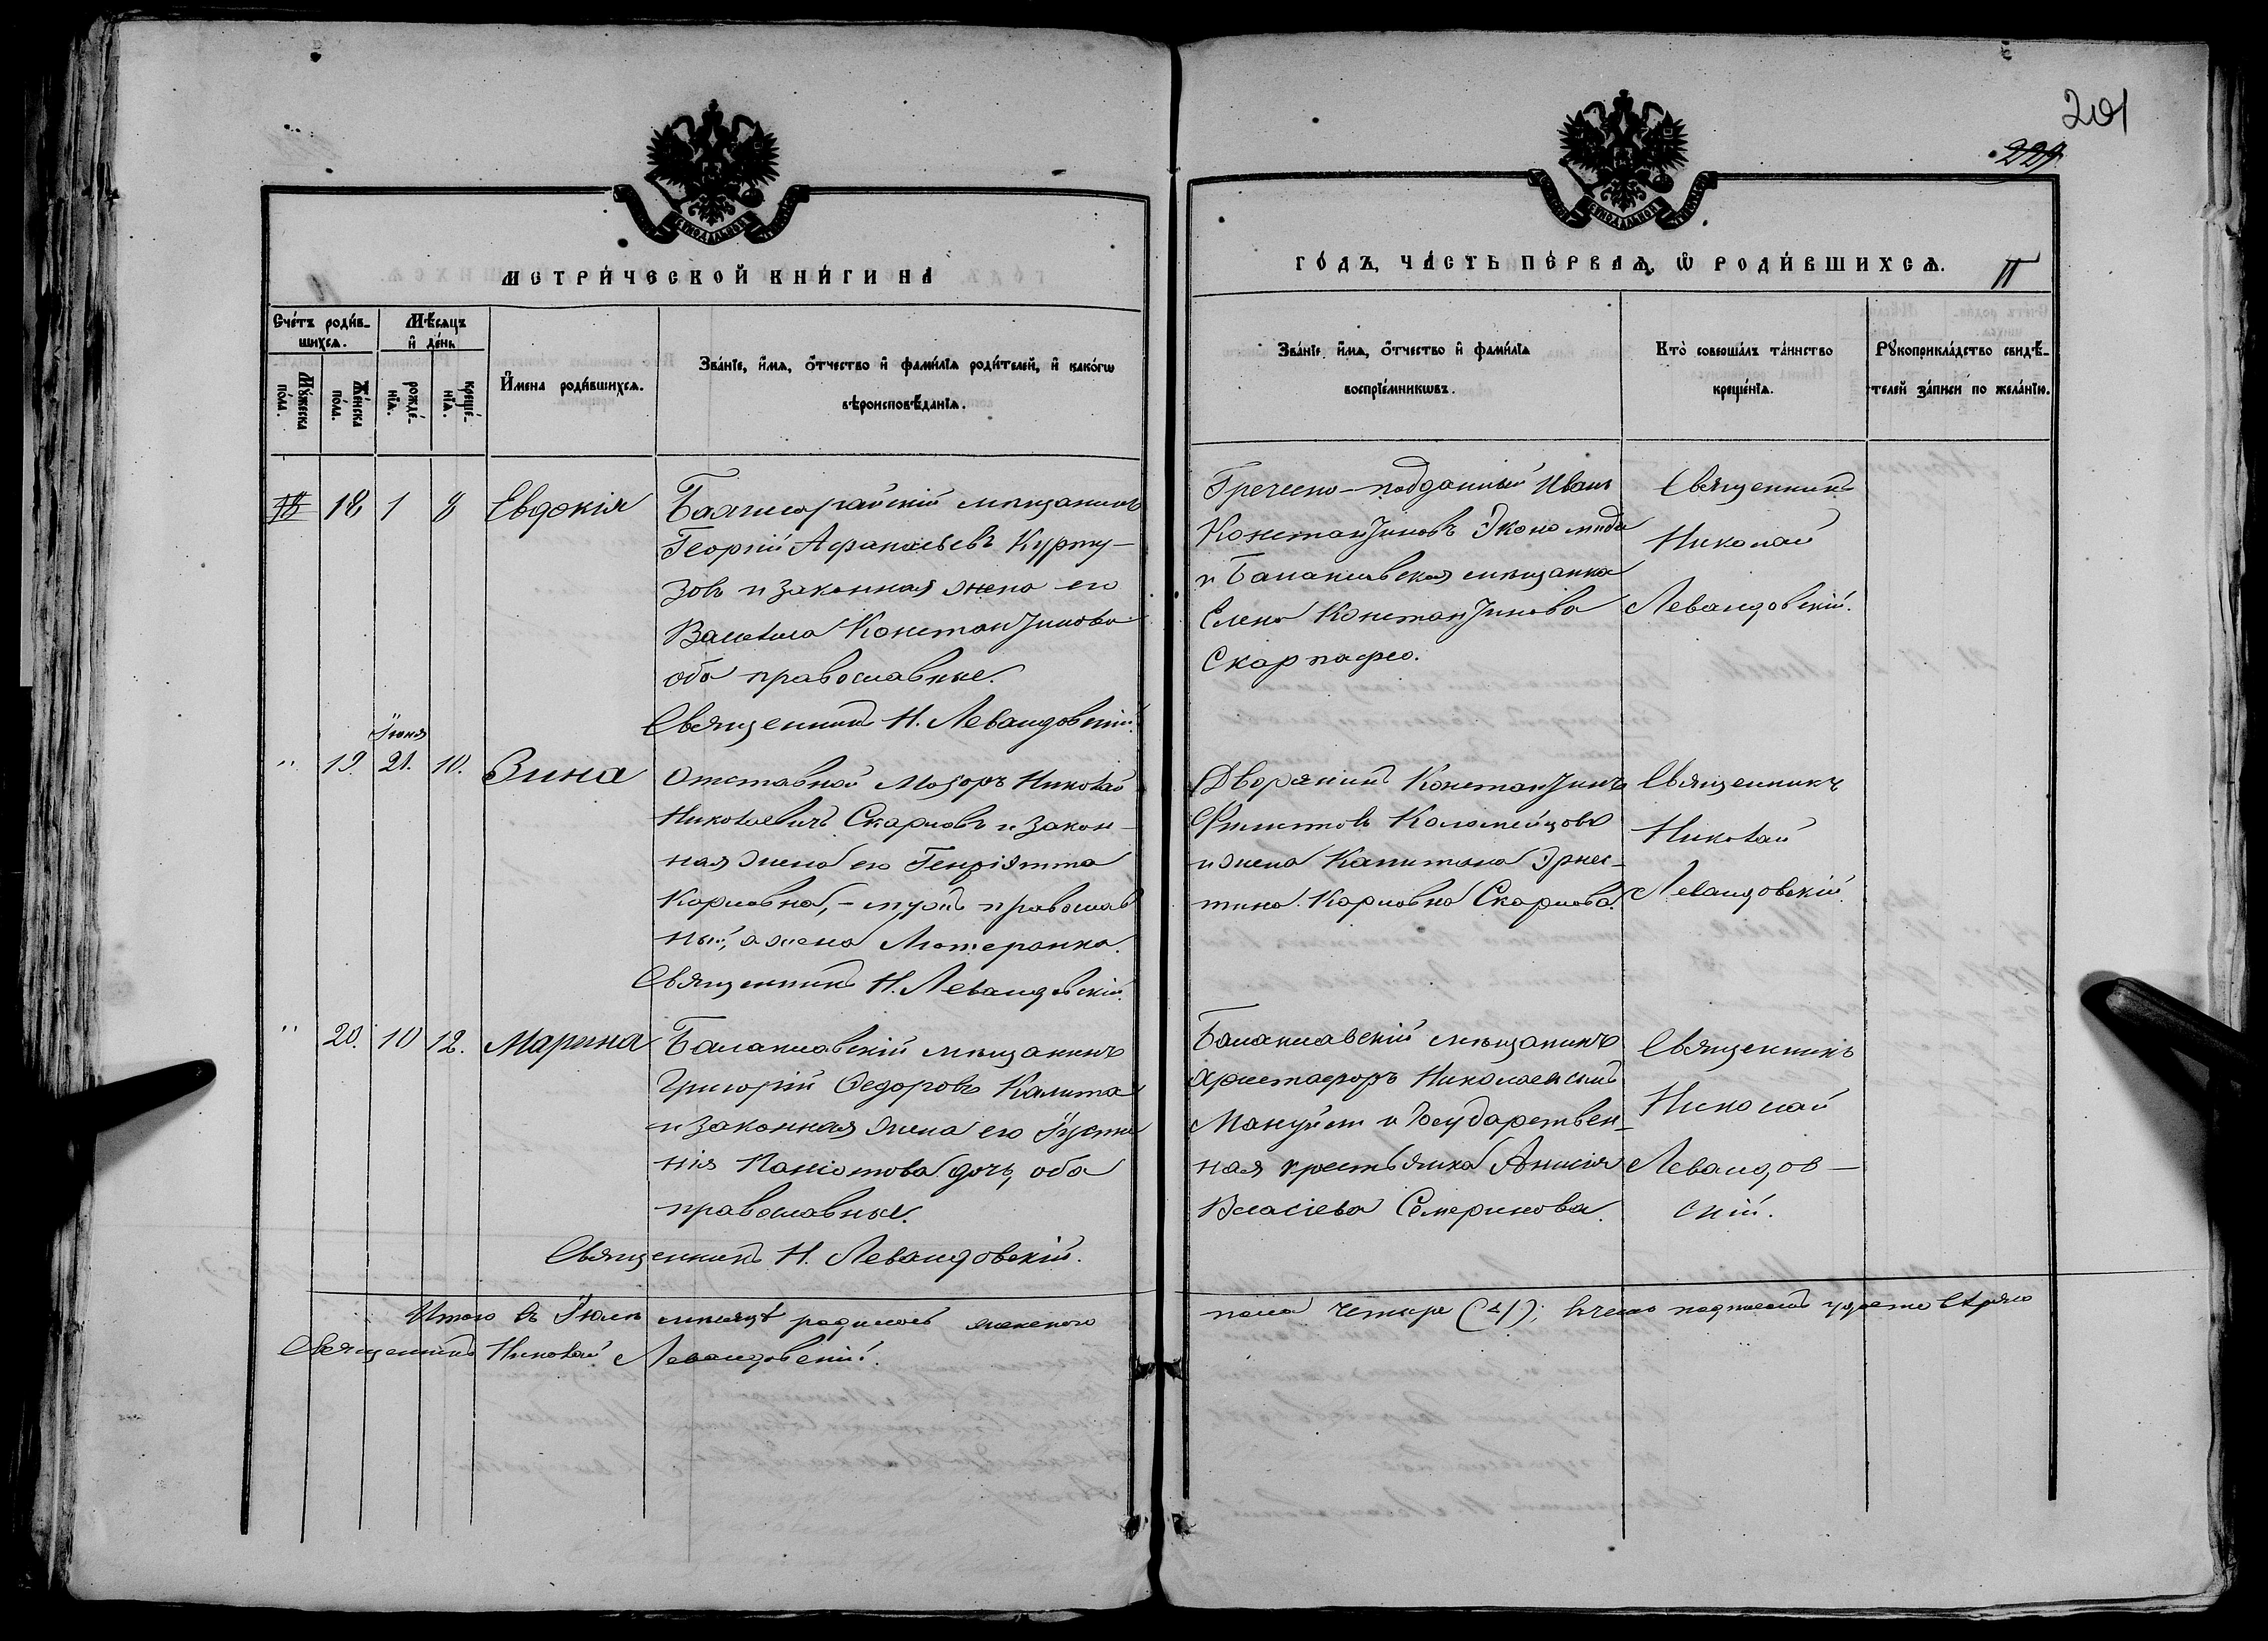 201
229
МЕТРИ́ЧЕСКОЙ КНИ́ГИ НА̀
ГО́ДЪ, ЧА́СТЬ ПЕ́РВАѦ, Ѡ҆ РОДИ́ВШИХСѦ.
Сче́тъ роди́в-
шихсѧ.
Мꙋ́жеска по́ла.
Же́нска по́ла.
Мѣ́сѧцъ
и҆ де́нь
рожде́-
нїѧ.
креще́-
нїѧ.
И҆мена роди́вшихсѧ.
Зва́нїе, и҆́мѧ, ѻ҆́тчество и҆ фами́лїѧ роди́телей, и҆ како́гѡ
вѣроисповѣ́данїѧ.
Зва́нїе, и҆́мѧ, ѻ҆́тчество и҆ фами́лїѧ
воспрїе́мникѡвъ.
Кто̀ соверша́лъ та́инство
креще́нїѧ.
Рꙋкоприкла́дство свидѣ́-
телей за́писи по жела́нїю.
18 18 1 8 Евдокія
мѣщанинъ
Георгій Афанасьевъ Курту-
зовъ и законная жена его
Константинова
оба православные.
Священникъ Н. Левандовскій.
Греческо-подданный Иванъ
Константиновъ Экономиди
и Балаклавская мѣщанка
Елена Константинова
Скарпафео.
Священникъ
Николай
Левандовскій.
Іюня
" 19. 21. 10. Зина
Отставной Маіоръ Николай
Николаевичъ Скарловъ и закон-
ная жена его Генріэтта
Карловна, - мужъ православ
ный, а жена Лютеранка.
Священникъ Н. Левандовскій.
Дворянинъ Константинъ
Филиповъ Коломейцовъ
и жена Капитана Эрнес-
тина Карловна Скарлова.
Священникъ
Николай
Левандовскій.
" 20. 10 12. Марина
Балаклавскій мѣщанинъ
Григорій Ѳедоровъ Калита
и законная жена его Іусти
нія Паніотова дочь, оба
православные.
Священникъ Н. Левандовскій.
Балаклавскій мѣщанинъ
Христафоръ Николаевъ сынъ
и Государствен-
ная крестьянка Анисія
Власіева Семеринова.
Священникъ
Николай
Левандов-
скій.
Итого въ Іюлѣ мѣсяцѣ родилось женскаго
пола четыре (4); въ чемъ подписомъ
Священникъ Николай Левандовскій.